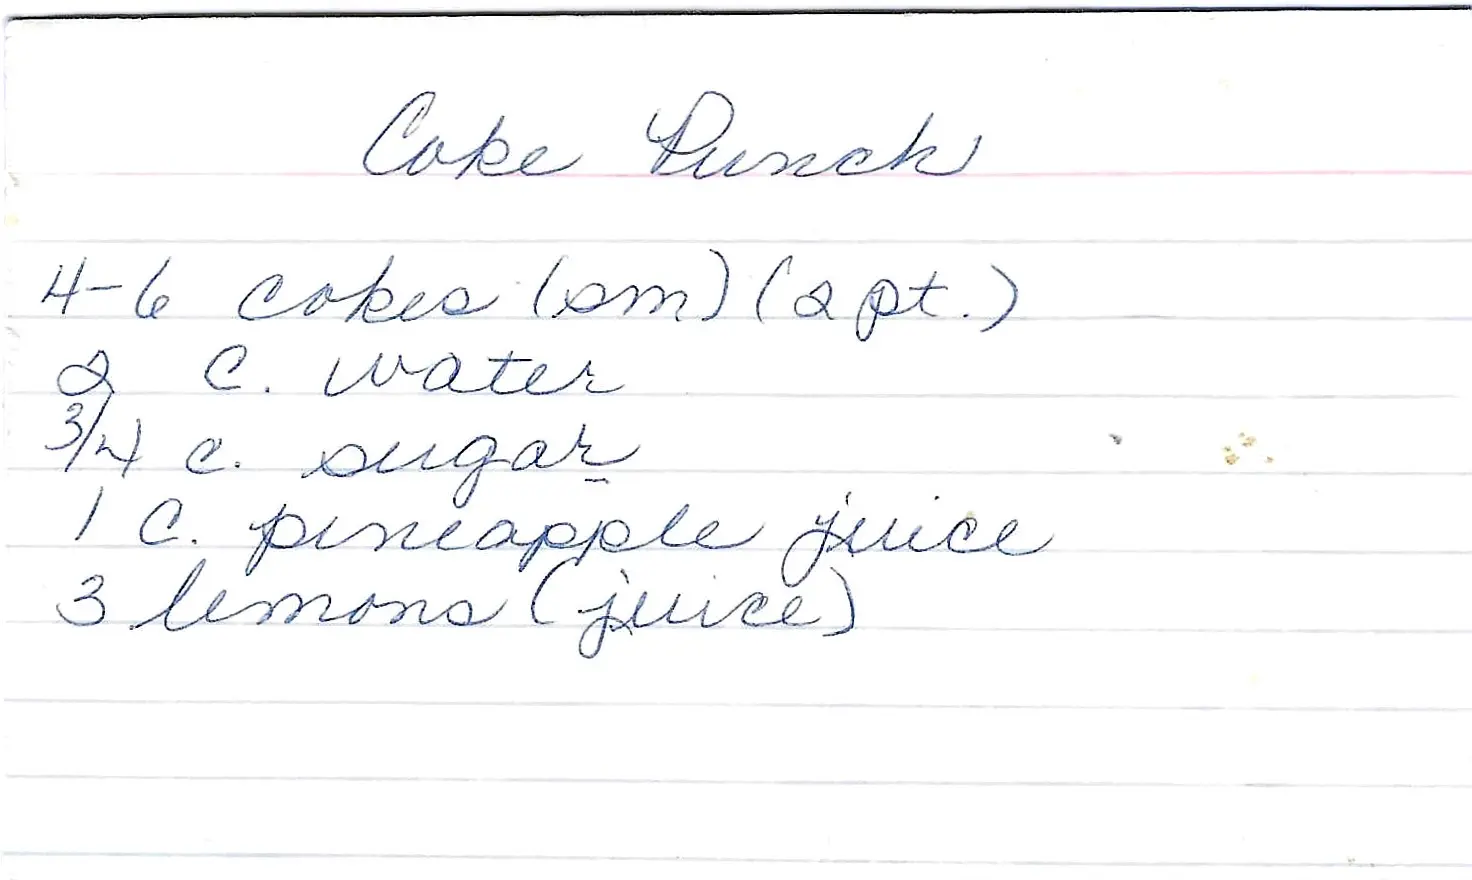 Coke Punch
4-6 cokes (sm) (2 pt.)
2 c. water
3/4 c. sugar
1 c. pineapple juice
3 lemons (juice)